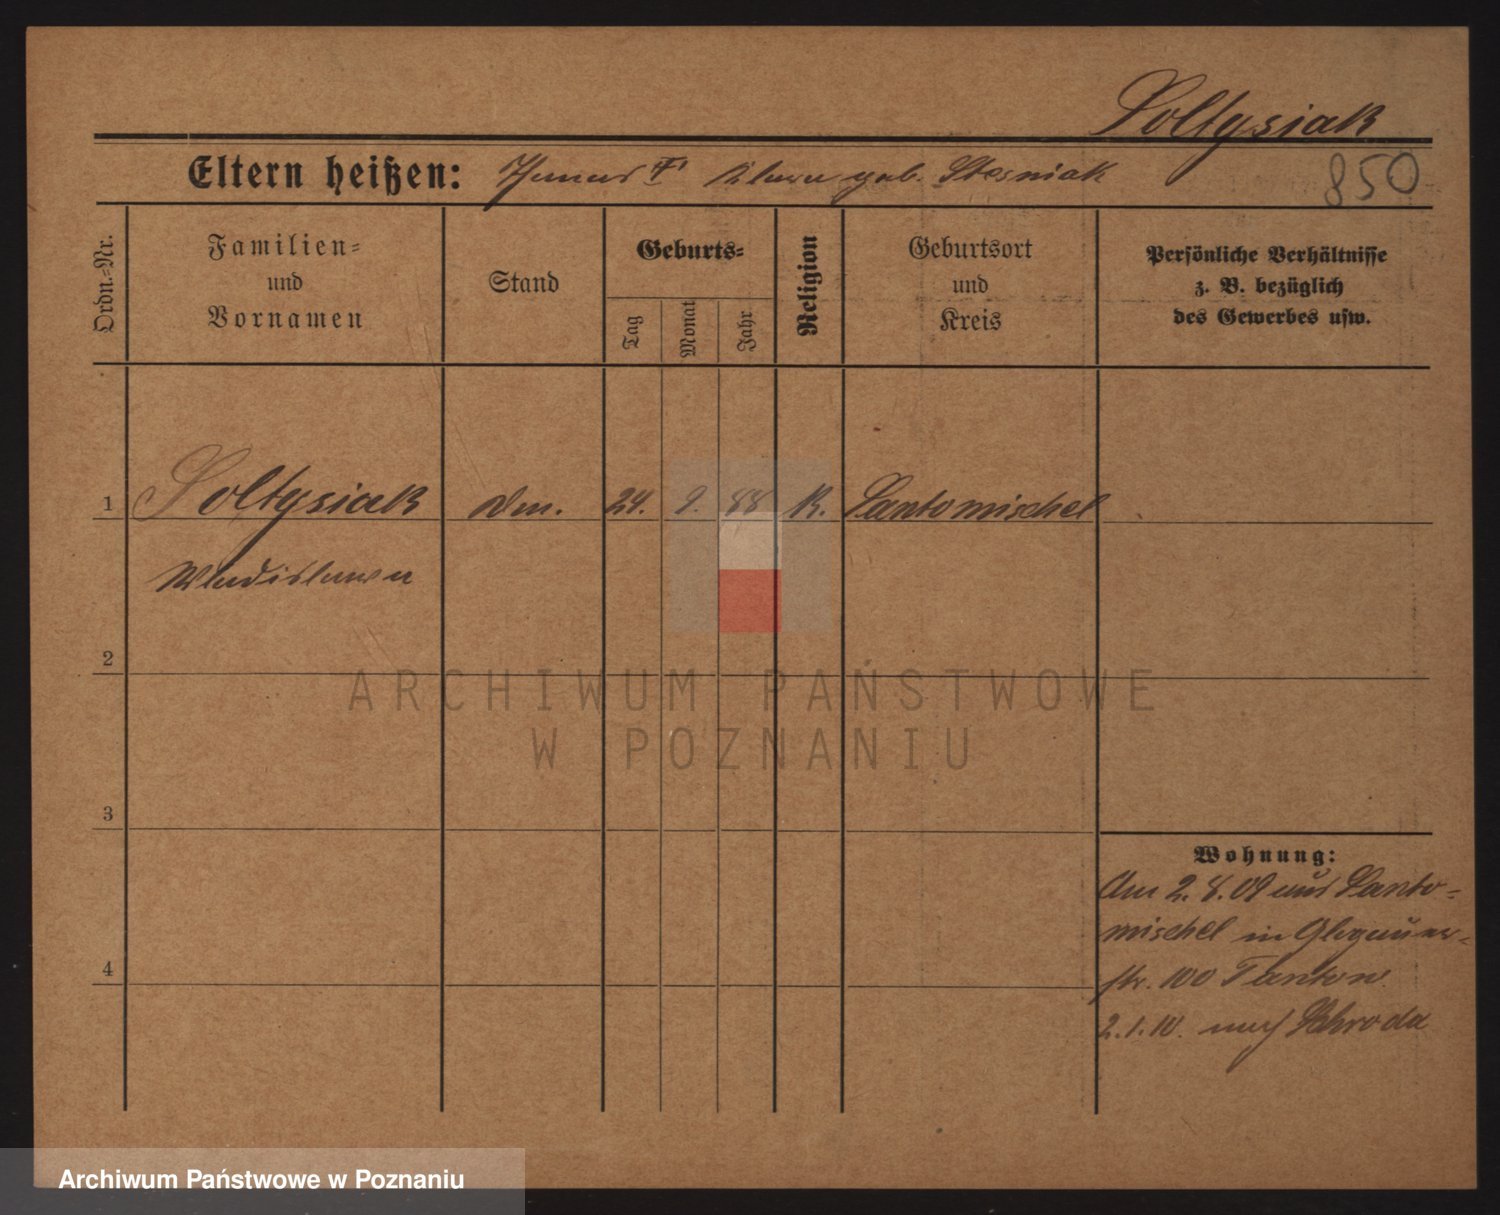 Soltysiak
Eltern heißen: geb. Stesniak 850
Ordn.-Nr.
Familien-
und
Vornamen
Stand
Geburts-
Tag
Monat
Jahr
Religion
Geburtsort
und
Kreis
Persönliche Verhältnisse
z. B. bezüglich
des Gewerbes usw.
1 Soltysiak 24. 9. 88 K. Santomischel
Wladislawa
2
ARCHIWUM PAŃSTWOWE
W POZNANIU
3
Wohnung:
Am 2.8.09 aus Santo-
mischel in Glogauer-
str. 100
2.1.10. nach Schroda
4
Archiwum Państwowe w Poznaniu